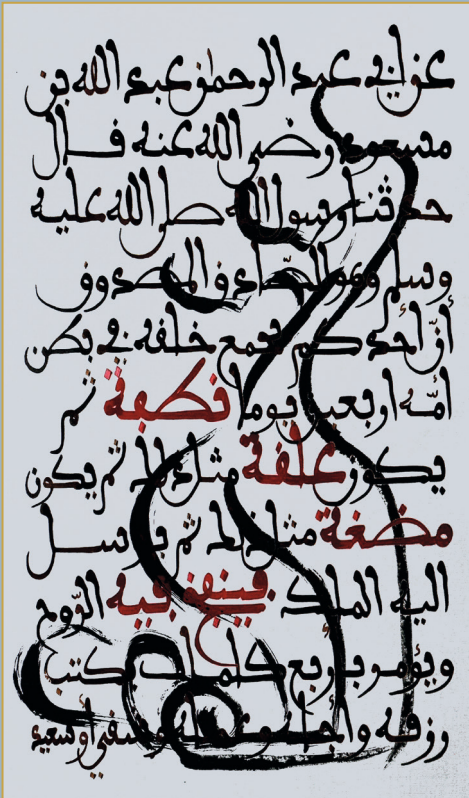 عن ابي عبد الرحمن عبد الله بن
مسعود رضي الله عنه قال
حدثنا رسول الله صلى الله عليه
وسلم وهو الصّادق المصدوق
أنّ احدكم يجمع خلقه في بطن
أمّه اربعين يوما نطفة ثم
يكون علقة مثل ذلك ثم يكون
مضغة مثل ذلك ثم يرسل
اليه الملك فينفخ فيه الرّوح
ويؤمر بأربع كلمات كتب
رزقه وأجله وعمله وشقي أو سعيد